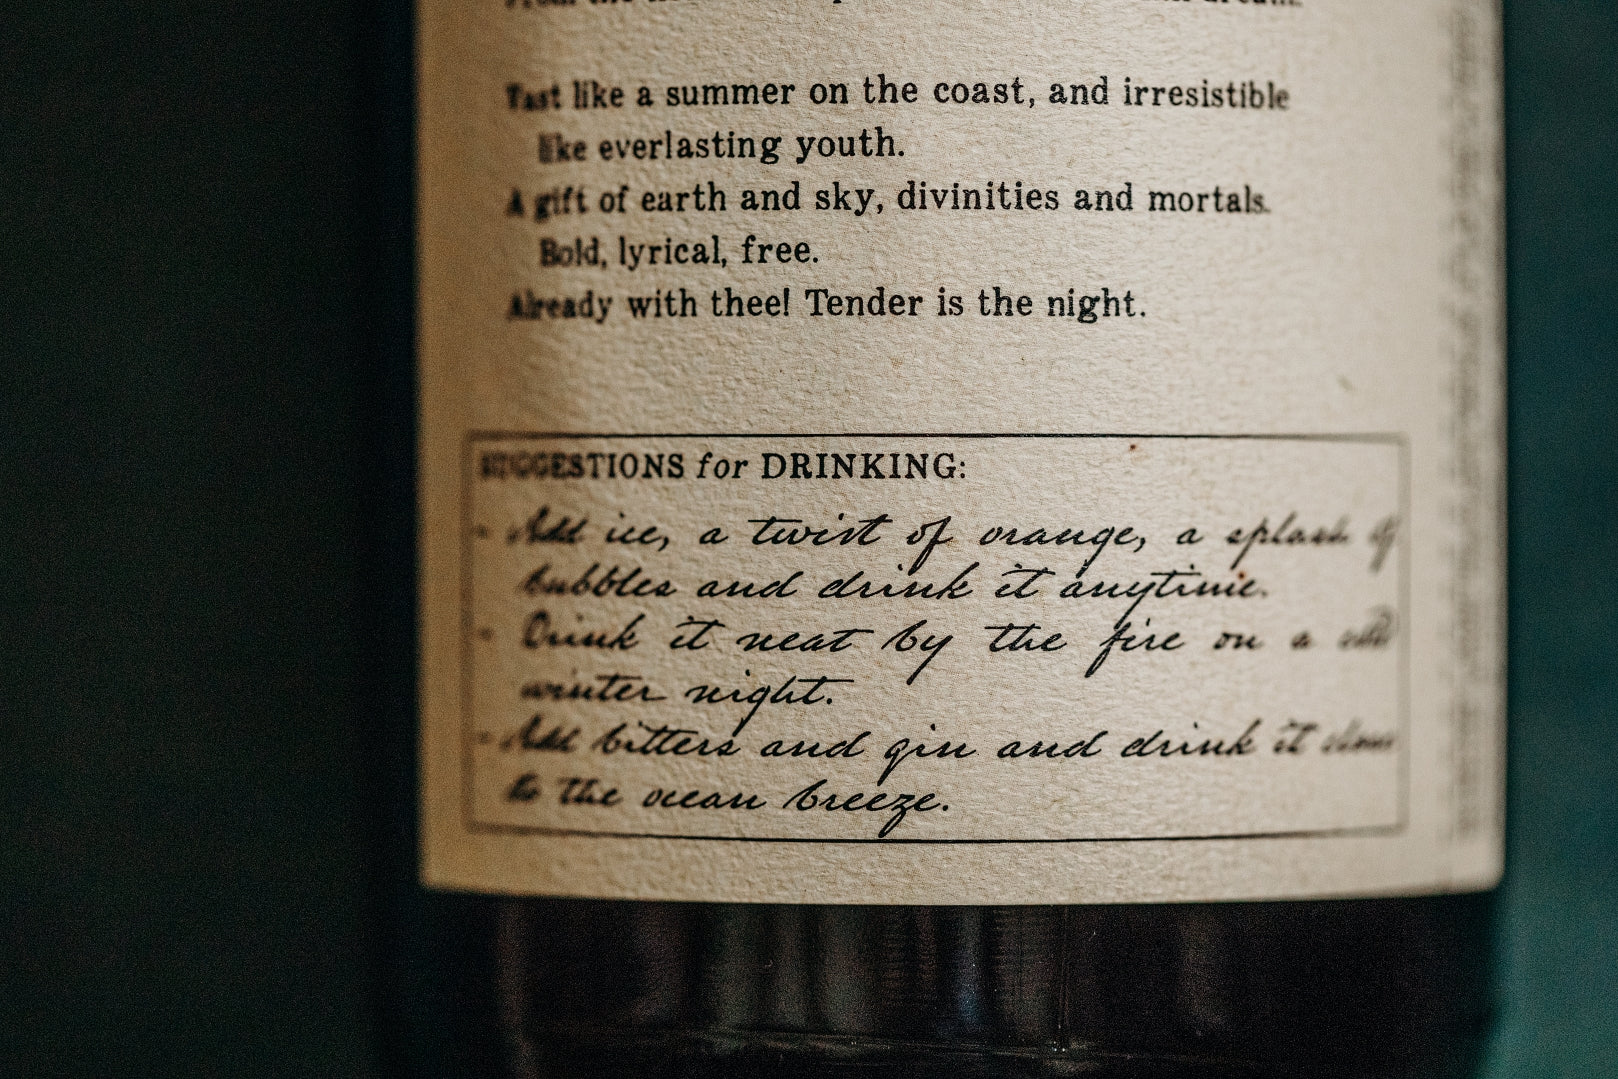 like a summer on the coast, and irresistible
like everlasting youth.
A gift of earth and sky, divinities and mortals.
Bold, lyrical, free.
Already with thee! Tender is the night.
SUGGESTIONS for DRINKING:
- Add ice, a twist of orange, a splash of
bubbles and drink it anytime.
- Drink it neat by the fire on a cold
winter night.
- Add bitters and gin and drink it
to the ocean breeze.